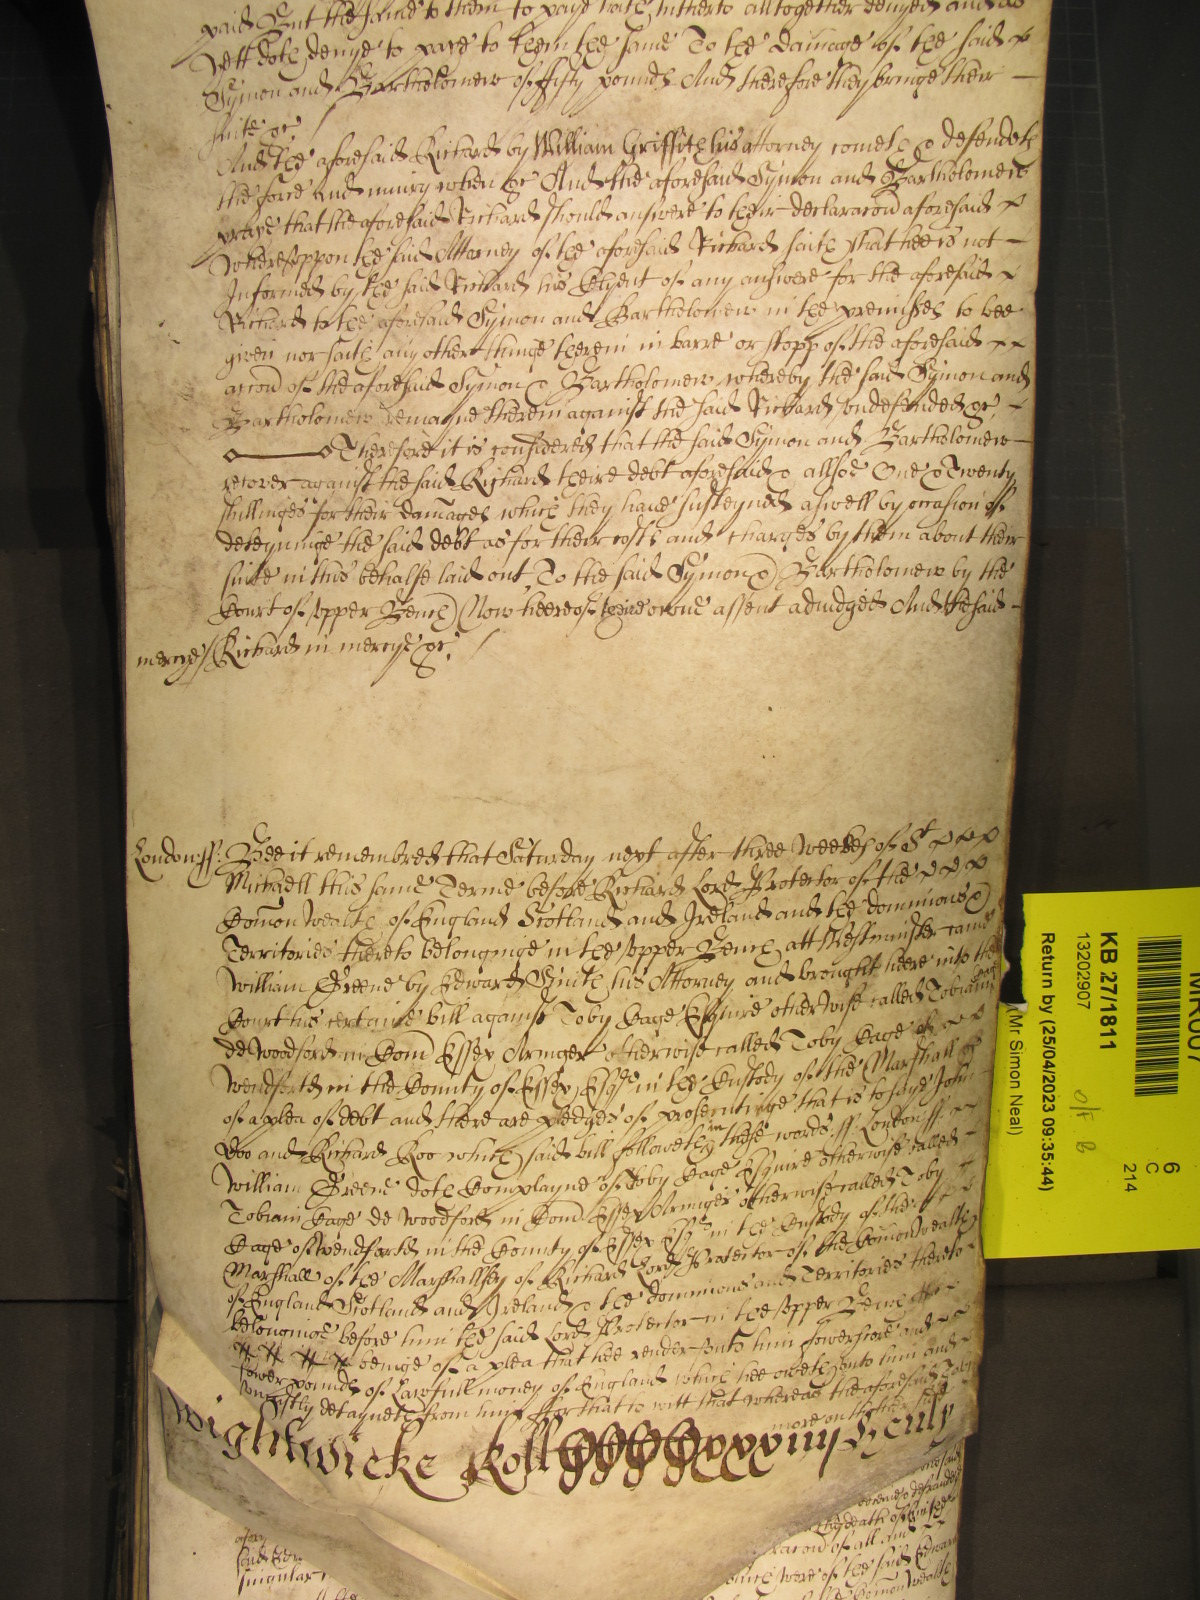 paid But the same to them to paye hath hitherto alltogether denyed and as
yett doth denye to paye to them the same To the damage of the said
Symon and Bartholomew of fifty pounds And therefore they bringe their
suite &c
And the aforesaid Richard by William Griffith his attorney cometh & defendeth
the force and iniury when &c And the aforesaid Symon and Bartholomew
praye that the aforesaid Richard should answere to their declaracon aforesaid
Whereuppon the said Attorney of the aforesaid Richard saith that hee is not
Informed by the said Richard his Clyent of any answere for the aforesaid
Richard to the aforesaid Symon and Bartholomew in the premisses to bee
given nor saith any other thinge therein in barre or stopp of the aforesaid
accon of the aforesaid Symon & Bartholomew whereby the said Symon and
Bartholomew remayne therein against the said Richard undefended &c
Therefore it is considered that the said Symon and Bartholomew
recover against the said Richard theire debt aforesaid & allsoe One & Twenty
shillinges for their damages which they have susteyned aswell by occasion of
deteyninge the said debt as for their costs and charges by them about their
suite in this behalfe laid out To the said Symon & Bartholomew by the
Court of upper Bench Now heere of theire owne assent adiudged And the said
mercye / Richard in mercye &c
London ss: Bee it remembred that Saturday next after three Weekes of St
Michaell this same Terme before Richard Lord Protector of the
Comon Wealth of England Scotland and Ireland and the dominions &
Territories thereto belonginge in the upper Bench att Westminster came
William Greene by Edward Smith his Attorney and brought heere into the
Court his certaine bill against Toby Cage Esquire otherwise called Tobiam Cage
de Woodford in Com Essex Armiger otherwise called Toby Cage of
Wendforth in the County of Essex Esqr in the Custody of the Marshall &c
of a plea of debt and there are pledges of prosecutinge that is to saye John
Doo and Richard Roo which said bill followeth in these words: ss London ss:
William Greene doth Complayne of Toby Cage Esquire otherwise called
Tobiam Cage de Woodford in Com Essex Armiger otherwise called Toby
Cage of Wendforth in the County of Essex Esqr in the Custody of the
Marshall of the Marshallsey of Richard Lord Protector of the Comon Wealth
of England Scotland and Ireland & the dominions and Territories thereto
belonginge before him the said Lord Protector in the upper Bench att
beinge of a plea that hee render unto him fowerscore and
fower pounds of Lawfull money of England which hee oweth unto him and
uniustly detayneth from him for that to witt that whereas the aforesaid Toby
more on the other side
Wightwicke Roll
KB 27/1811
13202907
Return by (25/04/2023 09:35:44)
(Mr Simon Neal)
6
C
214